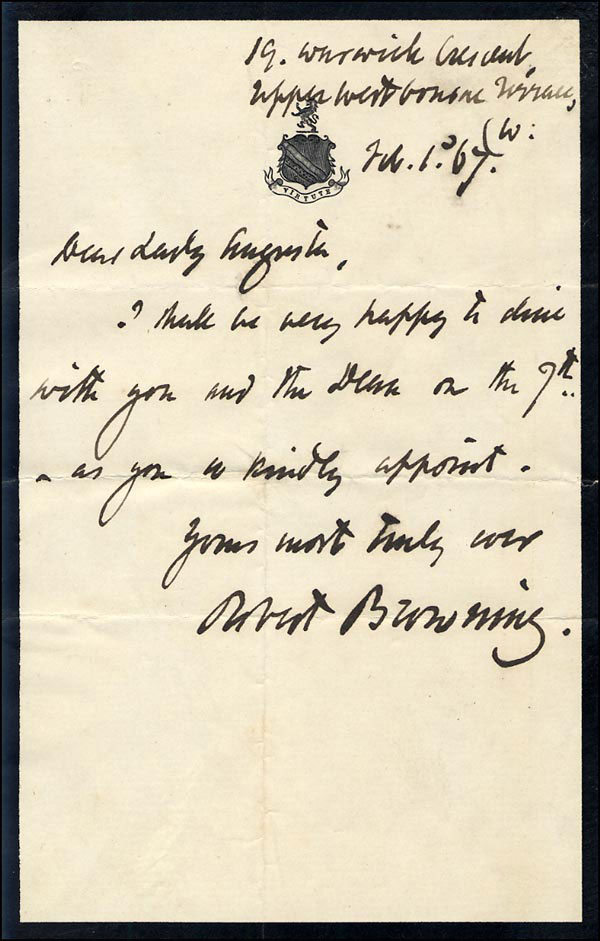 19. Warwick Crescent,
Upper Westbourne Terrace,
(W:
Feb. 1. '67.
VIRTUTE
Dear Lady Augusta,
I shall be very happy to dine
with you and the Dean on the 7th..
- as you so kindly appoint.
Yours most truly ever
Robert Browning.